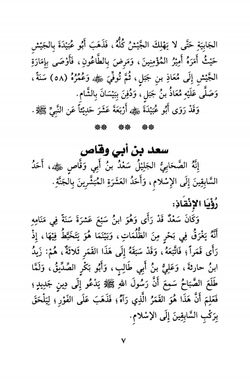 الجَابِيَةِ حَتَّى لا يَهْلِكَ الجَيْشُ كُلُّهُ، فَذَهَبَ أَبُو عُبَيْدَةَ بِالجَيْشِ
حَيْثُ أَمَرَهُ أَمِيرُ المُؤْمِنِينَ، وَمَرِضَ بِالطَّاعُونِ، فَأَوْصَى بِإِمَارَةِ
الجَيْشِ إِلَى مُعَاذِ بنِ جَبَلٍ، ثُمَّ تُوُفِّيَ ﷺ، وَعُمْرُهُ (٥٨) سَنَةً،
وَصَلَّى عَلَيْهِ مُعَاذُ بنُ جَبَلٍ، وَدُفِنَ بِبَيْسَانَ بِالشَّامِ.
وَقَدْ رَوَى أَبُو عُبَيْدَةَ أَرْبَعَةَ عَشَرَ حَدِيثاً عَنِ النَّبِيِّ ﷺ.
** ** **
سعد بن أبي وقاص
إِنَّهُ الصَّحَابِيُّ الجَلِيلُ سَعْدُ بنُ أَبِي وَقَّاصٍ، أَحَدُ
السَّابِقِينَ إِلَى الإِسْلامِ، وَأَحَدُ العَشَرَةِ المُبَشَّرِينَ بِالجَنَّةِ.
رُؤْيَا الإِنْقَاذِ:
وَكَانَ سَعْدٌ قَدْ رَأَى وَهُوَ ابنُ سَبْعَ عَشْرَةَ سَنَةً فِي مَنَامِهِ
أَنَّهُ يَغْرَقُ فِي بَحْرٍ مِنَ الظُّلُمَاتِ، وَبَيْنَمَا هُوَ يَتَخَبَّطُ فِيهَا، إِذْ
رَأَى قَمَراً؛ فَاتَّبَعَهُ، وَقَدْ سَبَقَهُ إِلَى هَذَا القَمَرِ ثَلاثَةٌ، هُمْ: زَيْدُ
ابنُ حَارِثَةَ، وَعَلِيُّ بنُ أَبِي طَالِبٍ، وَأَبُو بَكْرٍ الصِّدِّيقُ، وَلَمَّا
طَلَعَ الصَّبَاحُ سَمِعَ أَنَّ رَسُولَ اللهِ ﷺ يَدْعُو إِلَى دِينٍ جَدِيدٍ؛
فَعَلِمَ أَنَّ هَذَا هُوَ القَمَرُ الَّذِي رَآهُ؛ فَذَهَبَ عَلَى الفَوْرِ؛ لِيَلْحَقَ
بِرَكْبِ السَّابِقِينَ إِلَى الإِسْلامِ.
٧